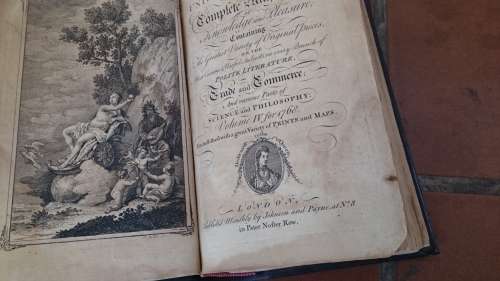 Complete
Knowledge and Pleasure;
Containing
The Greatest Variety of Original Pieces,
ON THE
Subjects in every Branch of
POLITE LITERATURE,
Trade and Commerce;
And various Parts of
SCIENCE and PHILOSOPHY;
Volume IV for 1768.
a great Variety of PRINTS and MAPS.
LONDON,
Monthly by Johnson and Payne, at No. 8
in Pater Noster Row.